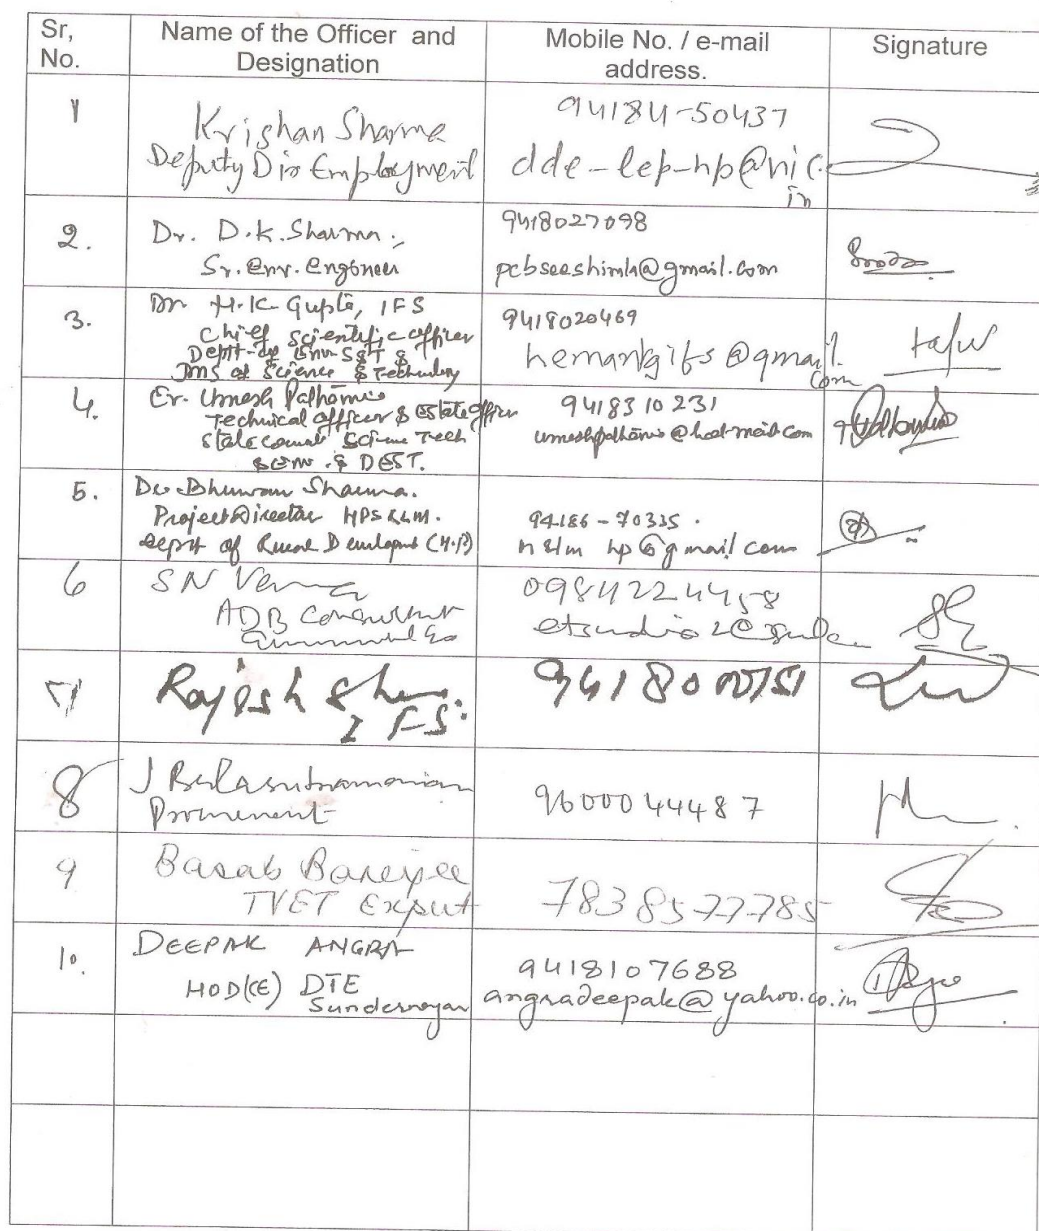 Sr, No.
Name of the Officer and Designation
Mobile No. / e-mail address.
Signature
1
Krishan Sharma
Deputy Dir Employment
94184-50437
dde-lep-hp@nic.
in
2.
Dr. D.K. Sharma.,
Sr. Env. Engineer
9418027098
pcbseeshimla@gmail.com
3.
Dr H.K. Gupta, IFS
Chief Scientific officer
Deptt. of Env. S&T &
of Science & Technology
9418020469
hemankgifs@gmail.
com
4.
Er. Umesh Pathania
Technical officer & Estate officer
State Council Science Tech
& Env. & DEST.
9418310231
umeshpathania@hotmail.com
5.
Bhuwan Sharma.
Project Director HPSRLM.
Deptt of Rural Development (H.P)
94186-70335.
nrlm hp@gmail com
6
SN Verma
ADB Consultant
09811224458
7
Rajesh
IFS.
94180
8
J Balasubramanian
9600044487
9
Basab Banerjee
TVET Expert
7838577785
10.
DEEPAK ANGRA
HOD(CE) DTE
Sundernagar
9418107688
angradeepak@yahoo.co.in